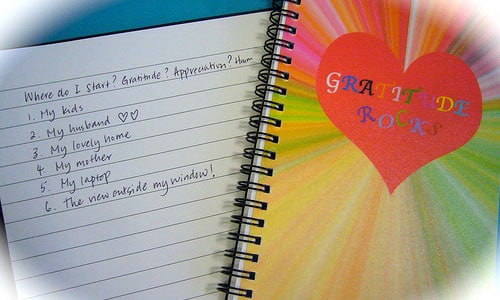 Where do I start? Gratitude? Appreciation? Hum
1. My kids
2. My husband ♡♡
3. My lovely home
4. My mother
5. My laptop
6. The view outside my window!
GRATITUDE
ROCKS